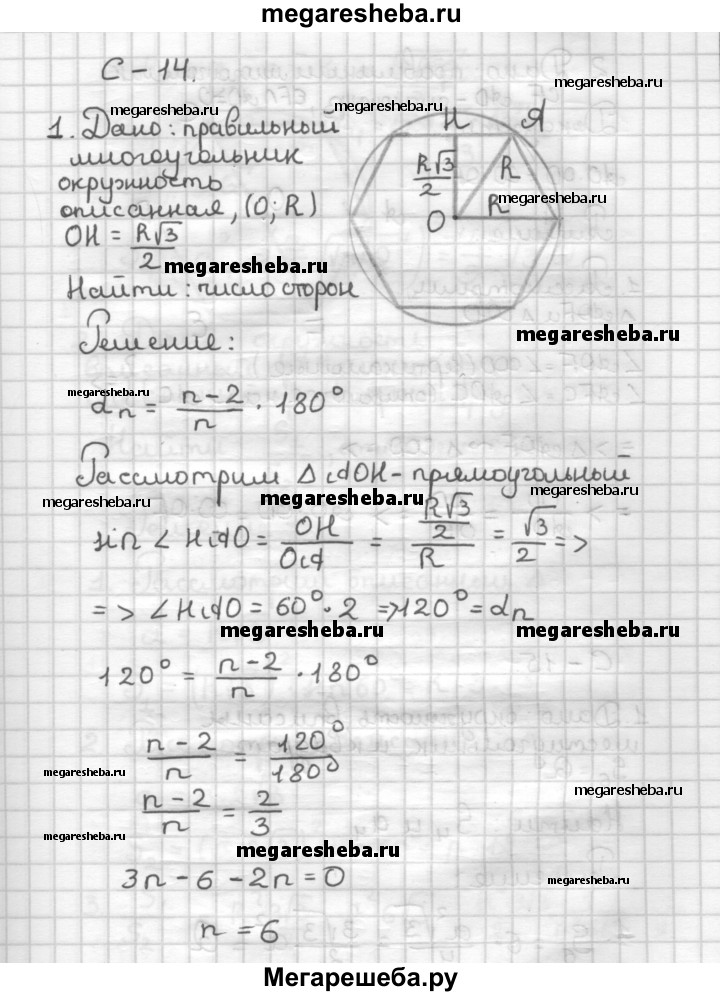 megaresheba.ru
С-14.
megaresheba.ru
megaresheba.ru
megaresheba.ru
1. Дано: правильный
многоугольник
окружность
описанная, (O; R)
OH = R√3/2
H A
R√3/2 R
megaresheba.ru
O R
megaresheba.ru
Найти: число сторон
megaresheba.ru
Решение:
megaresheba.ru
αn = n-2/n · 180°
Рассмотрим △AOH - прямоугольный
megaresheba.ru megaresheba.ru megaresheba.ru
sin ∠HAO = OH/OA = R√3/2/R = √3/2 =>
=> ∠HAO = 60° · 2 => 120° = αn
megaresheba.ru megaresheba.ru
120° = n-2/n · 180°
n-2/n = 120°/180°
megaresheba.ru megaresheba.ru
n-2/n = 2/3
megaresheba.ru megaresheba.ru
3n - 6 - 2n = 0
megaresheba.ru
n = 6
Мегарешеба.ру